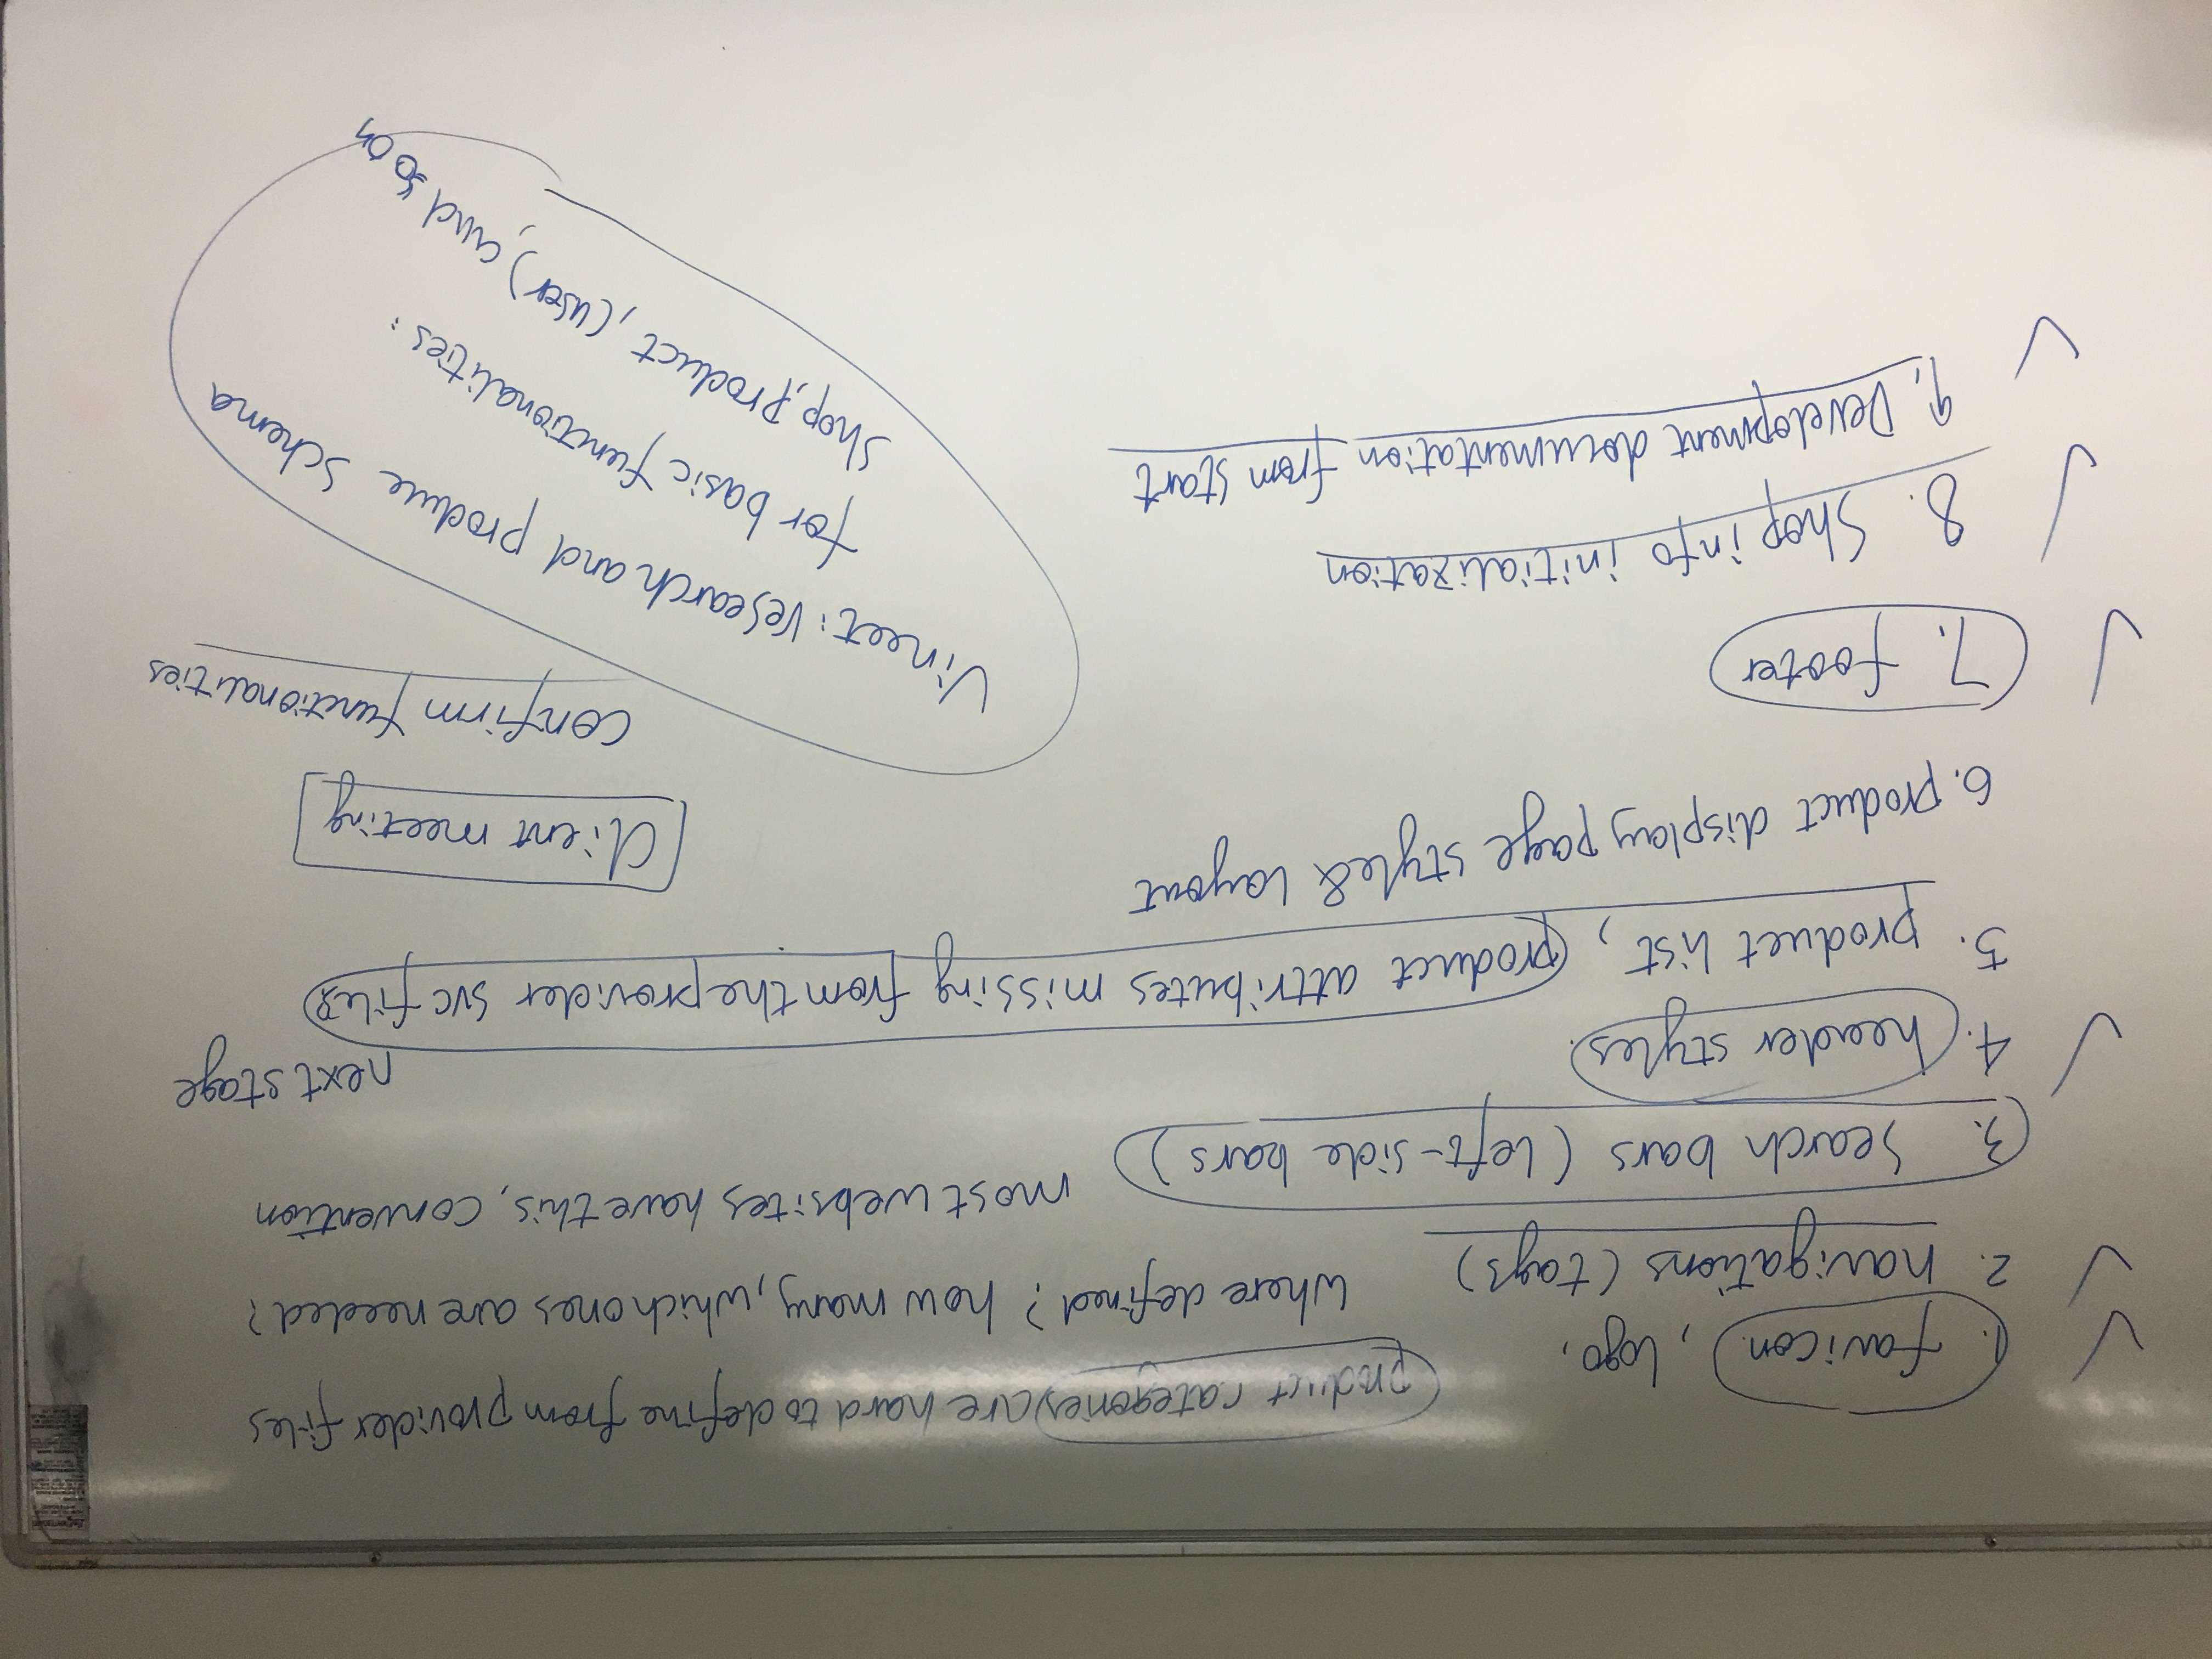 1. favicon. , logo,
product categories are hard to define from provider files
2. navigations (tags)
Where defined? how many, which ones are needed?
3. Search bars (left-side bars)
most websites have this, convention
4. header styles.
next stage
5. product list, product attributes missing from the provider svc files
6. product display page style & layout
Client meeting
confirm functionalities
7. footer
8. Shop info initialization
9. Development documentation from start
Vineet: research and produce schema
for basic functionalities:
Shop, product, (user), and so on